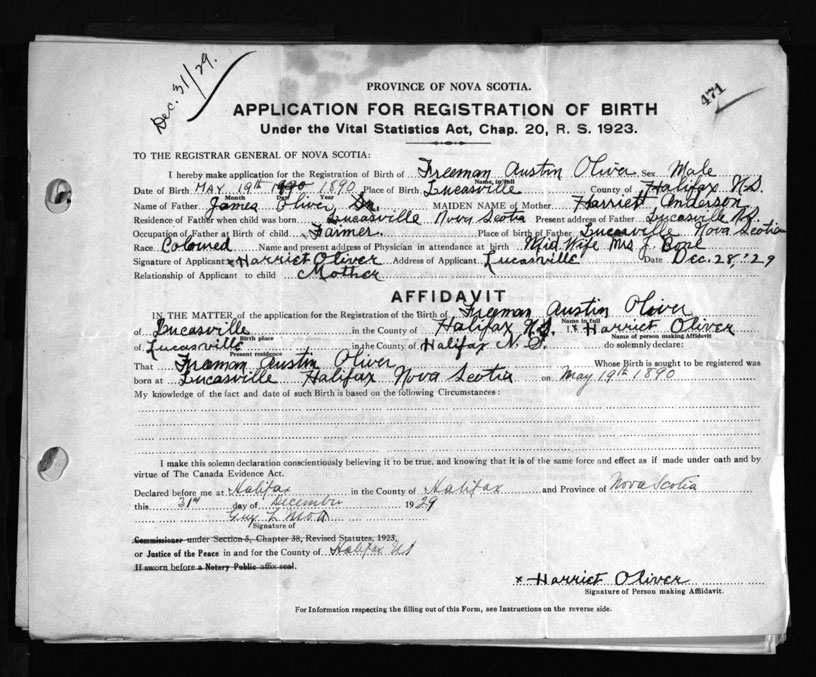 Dec. 31/29.
471
PROVINCE OF NOVA SCOTIA.
APPLICATION FOR REGISTRATION OF BIRTH
Under the Vital Statistics Act, Chap. 20, R. S. 1923.
TO THE REGISTRAR GENERAL OF NOVA SCOTIA:
I hereby make application for the Registration of Birth of Freeman Austin Oliver Sex Male
Name in full
Date of Birth MAY 19th 1890 1890 Place of Birth Lucasville County of Halifax N.S.
Month Date Year
Name of Father James Oliver Sr. MAIDEN NAME of Mother Harriet Anderson
Residence of Father when child was born Lucasville Nova Scotia Present address of Father Lucasville N.S.
Occupation of Father at Birth of child Farmer. Place of birth of Father Lucasville Nova Scotia
Race Coloured Name and present address of Physician in attendance at birth Mid Wife Mrs J.
Signature of Applicant x Harriet Oliver Address of Applicant Lucasville Date Dec. 28, '29
Relationship of Applicant to child Mother
AFFIDAVIT
IN THE MATTER of the application for the Registration of the Birth of Freeman Austin Oliver
Name in full
of Lucasville in the County of Halifax N.S. I, x Harriet Oliver
Birth place Name of person making Affidavit
of Lucasville in the County of Halifax N.S. do solemnly declare:
Present residence
That Freeman Austin Oliver Whose Birth is sought to be registered was
born at Lucasville Halifax Nova Scotia on May 19th 1890
My knowledge of the fact and date of such Birth is based on the following Circumstances:
I make this solemn declaration conscientiously believing it to be true, and knowing that it is of the same force and effect as if made under oath and by
virtue of The Canada Evidence Act.
Declared before me at Halifax in the County of Halifax and Province of Nova Scotia
this 31st day of December 1929
Guy L
Signature of
Commissioner under Section 5, Chapter 38, Revised Statutes, 1923,
or Justice of the Peace in and for the County of Halifax NS
If sworn before a Notary Public affix seal.
x Harriet Oliver
Signature of Person making Affidavit.
For Information respecting the filling out of this Form, see Instructions on the reverse side.